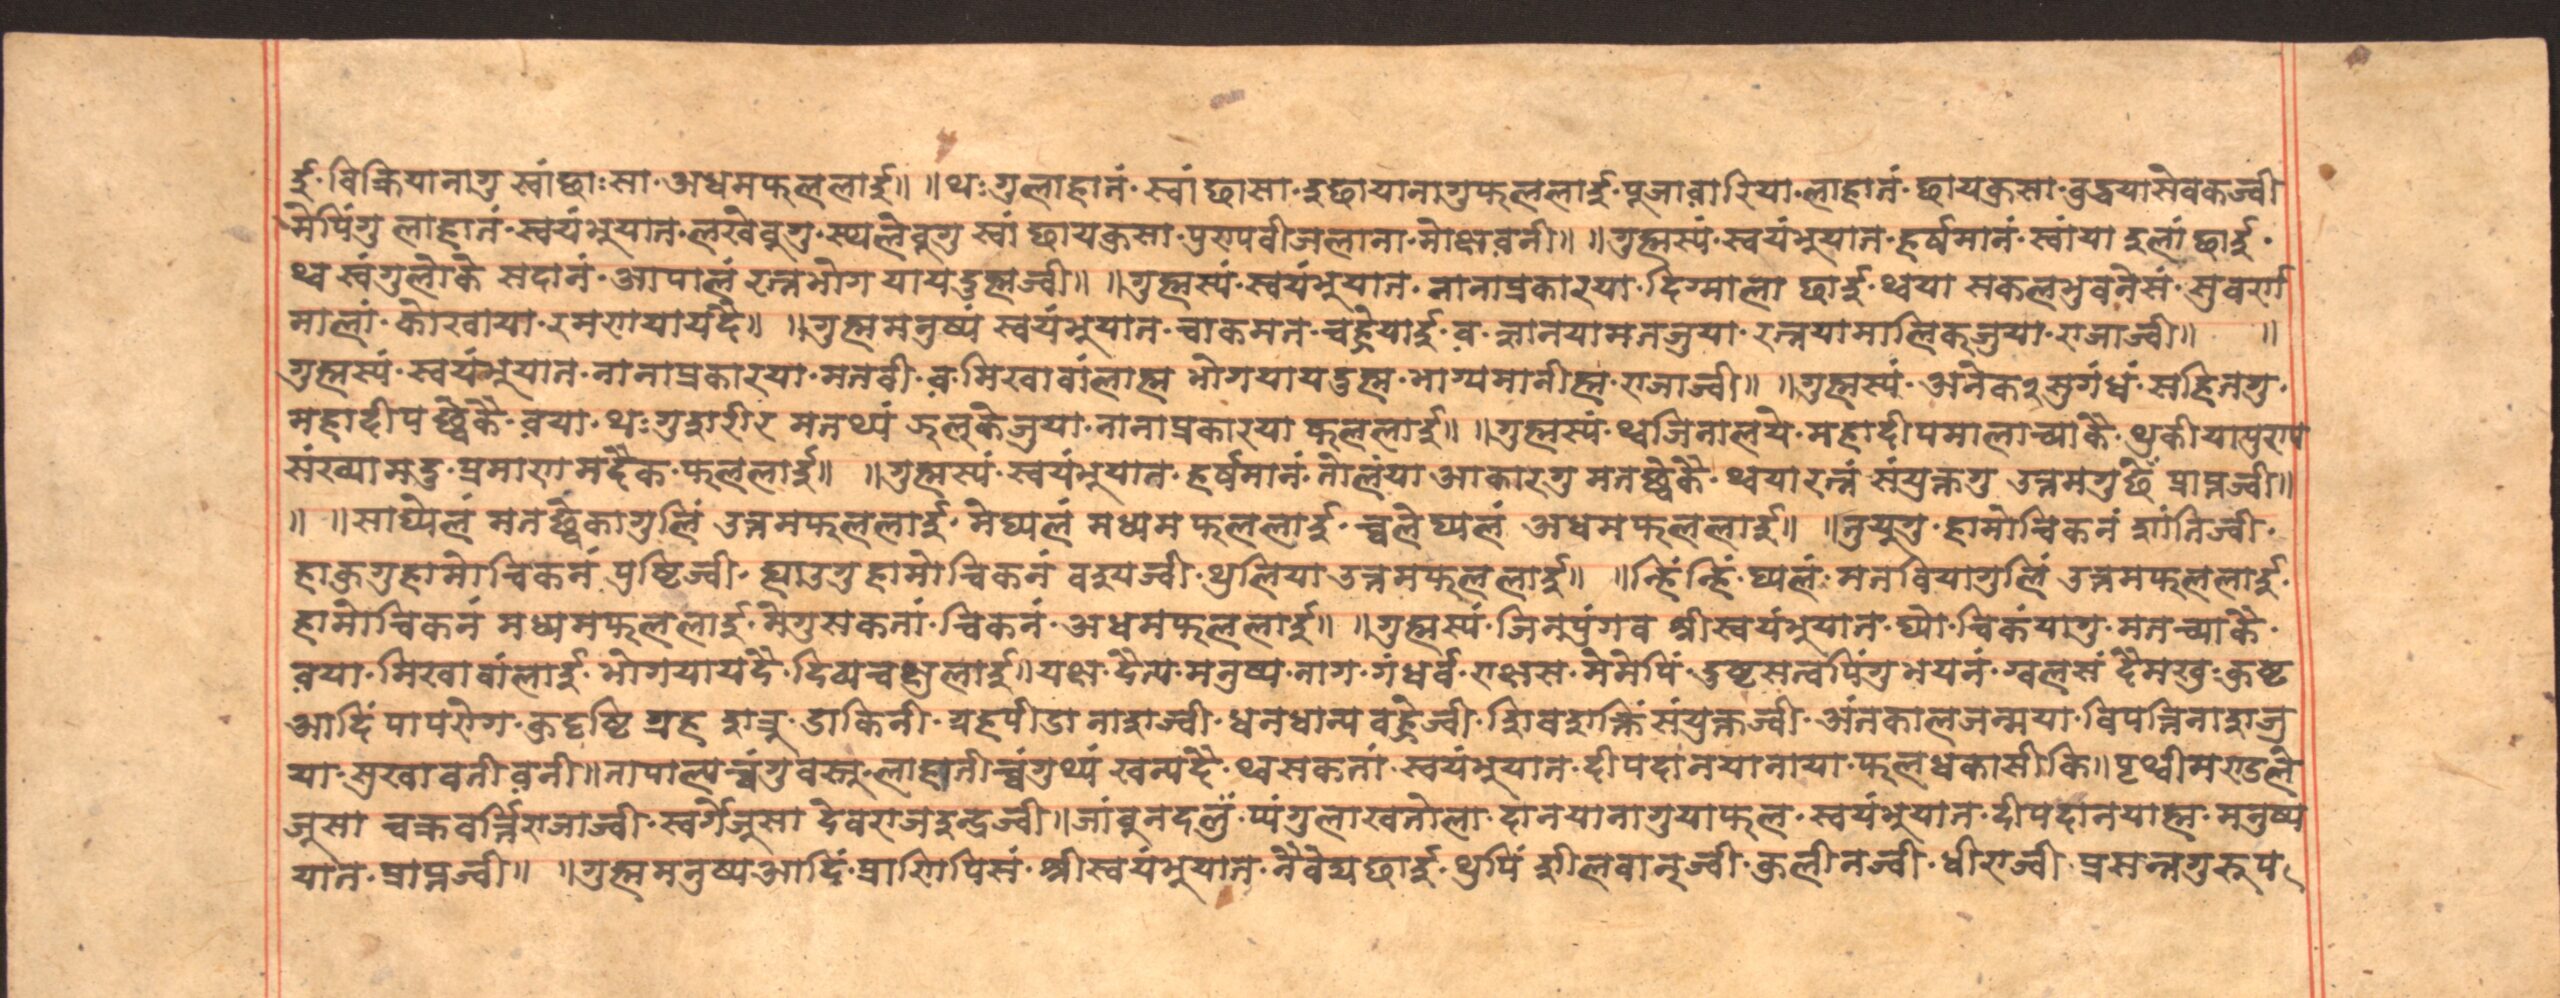 र्इ॰ विक्रियानागु स्वांछाःसा॰ अधमफललार्इ॥ ॥थःगुलाहानं॰ स्वां छासा॰ इछायानागुफललार्इ॰ पूजावारिया॰ लाहानं॰ छायक्रसा॰ बुद्धयासेवकज्वी
मेपिंगु लाहानं॰ स्वयंभुयात॰ लखेबुगु॰ स्थलेबुगु स्वां छायक्रसा॰ पुण्यवीजलाना॰ मोक्षवनी॥ ॥गुह्मस्यं॰ स्वयंभुयात॰ हर्षमानं॰ स्वांया इलां छार्इ॰
थ्व स्वंगुलोके सदानं॰ आपालं रत्नभोग यायदुह्मज्वी॥ ॥गुह्मस्यं॰ स्वयंभुयात॰ नानाप्रकारया॰ दिग्माला छार्इ॰ थ्वया सकलभुवनेसं॰ सुवर्ण
मालां॰ कोखाया॰ रमणयायदै॥ ॥गुह्ममनुष्यं स्वयंभुयात॰ चाकमत॰ च्यार्इ॰ व॰ ज्ञानयामतजुया॰ रत्नयामालिकजुया॰ राजाज्वी॥ ॥
गुह्मस्यं॰ स्वयंभुयात॰ नानाप्रकारया॰ मतवी॰ व॰ मिखावांलाह्म भोगयायदुह्म॰ भाग्यमानीह्म॰ राजाज्वी॥ ॥गुह्मस्यं॰ अनेक२सुगंधं॰ सहितगु॰
महादीप च्छेकै॰ वया॰ थःगुशरीर मतथ्यं जुलुकेजुया॰ नानाप्रकारया फललार्इ॥ ॥गुह्मस्यं॰ थ्वजिनालये॰ महादीपमालाच्याकै॰ थुकीयापुण्य
संख्यामदु॰ प्रमाणमदैक॰ फललार्इ॥ ॥गुह्मस्यं॰ स्वयंभुयात॰ हर्षमानं॰ तोलंया आकारगु मतच्छेकै॰ थ्वयारत्नं संयुक्तगु उत्तमगुछें प्राप्तज्वी॥
॥ ॥साघ्येलं मतच्छेकागुलिं उत्तमफललार्इ॰ मेघ्यलं मध्यमफललार्इ॰ च्वलेघ्यलं अधमफललार्इ॥ ॥तुयुगु॰ हामोचिकनं शांतिज्वी॰
हाकुगुहामोचिकनं पुष्टिज्वी॰ ह्याउगुहामोचिकनं वश्यज्वी॰ थुलिया उत्तमफललार्इ॥ ॥न्हिं न्हिं॰ घ्यलं॰ मतवियागुलिं उत्तमफललार्इ॰
हामोचिकनं मध्यमफललार्इ॰ मेगुसकतां॰ चिकनं॰ अधमफललार्इ॥ ॥गुह्मस्यं॰ जिनपुंगव श्रीस्वयंभुयात॰ घ्यो॰ चिकंयागु॰ मतच्याकै॰
वया॰ मिखावांलार्इ॰ भोगयायदै॰ दिव्यचक्षुलार्इ॥यक्ष॰ दैत्य॰ मनुष्य॰ नाग॰ गंधर्व॰ राक्षस॰ मेमेपिं॰ दुष्टसत्वपिंगु भयनं॰ ग्वलसं दैमखु॰ कुष्ट
आदिं पापरोग॰ कुदृष्टि ग्रह शत्रु॰ डाकिनी॰ ग्रहपीडा नाशज्वी॰ धनधान्य वज्वी॰ शिवशक्तिं संयुक्तज्वी॰ अंतकालजन्मया॰ विपत्तिनाशजु
या॰ सुखावतीवनी॥तापाल्य॰ च्वंगुवस्तु॰ लाहातीच्वंगुथ्यं खन्यदै॰ थ्वसकतां॰ स्वयंभुयात॰ दीपदानयानाया॰ फलधकासीकि॥पृथ्वीमण्डले
जुसा चक्रवर्त्तिराजाज्वी॰ स्वर्गेजुसा देवराजइन्द्रज्वी॥जांबुनदलुं॰ प्यंगुलाखतोला॰ दानयानागुयाफल॰ स्वयंभुयात॰ दीपदानयाह्म॰ मनुष्य
यात॰ प्राप्तज्वी॥ ॥गुह्ममनुष्यआदिं॰ प्राणिपिंसं॰ श्रीस्वयंभुयात॰ नैवेद्यछार्इ॰ थुपिं शीलवान्ज्वी॰ कुलीनज्वी॰ धीरज्वी॰ प्रसन्नगुरूप